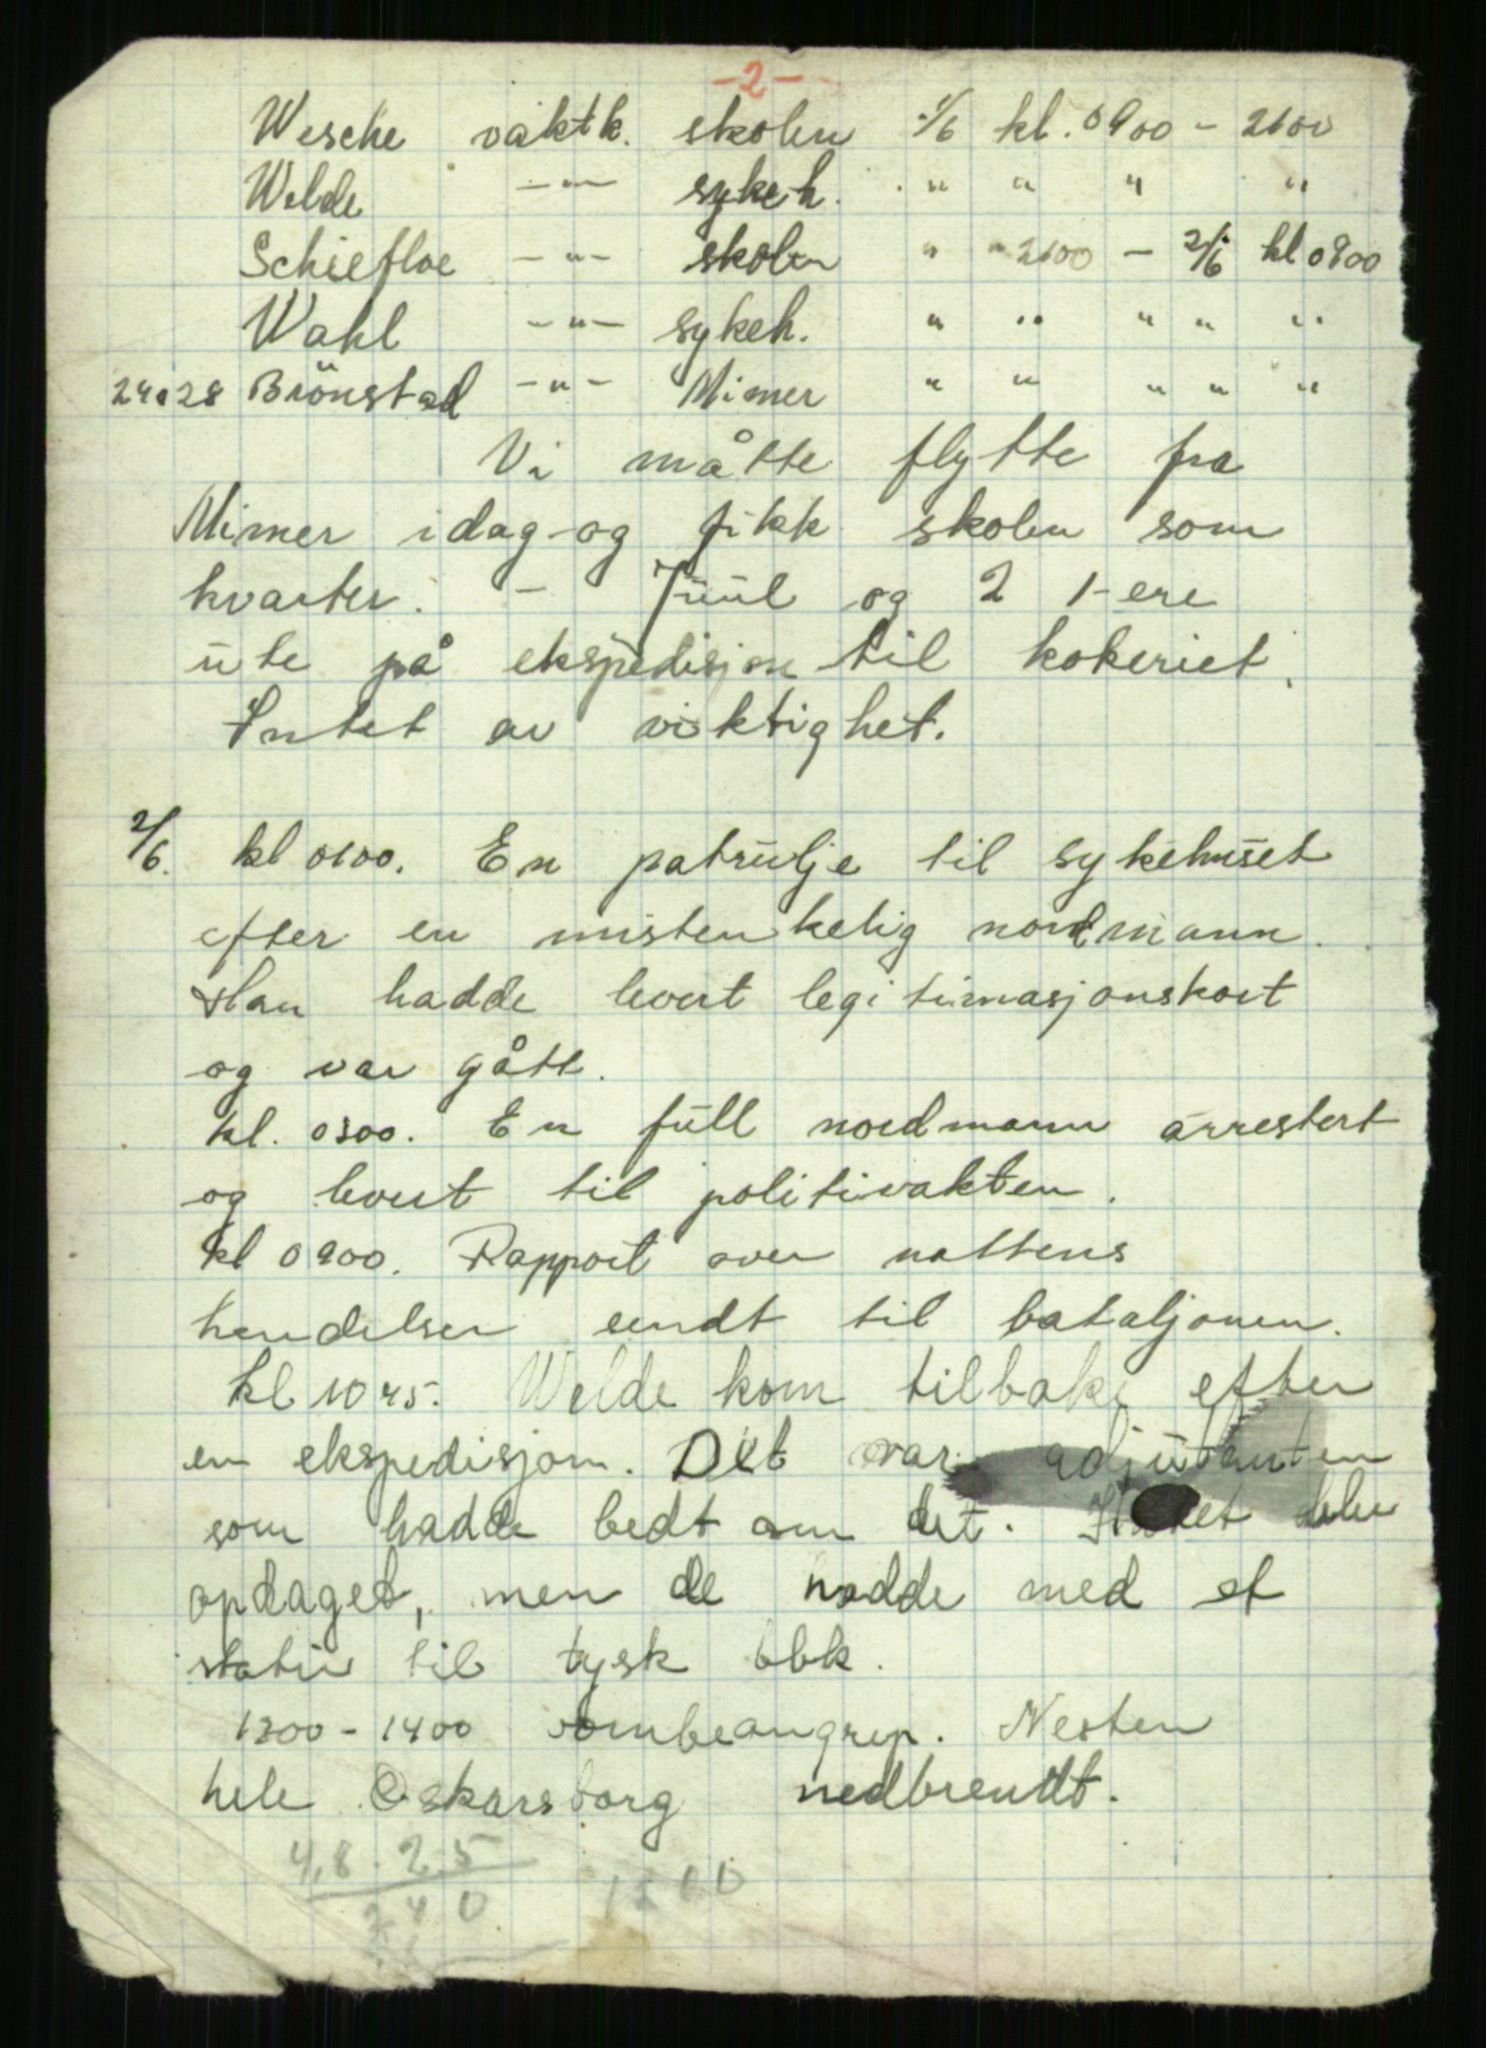 -2-
Wesche vaktk. skolen 1/6 kl. 0900 - 2100
Welde -"- sykeh. " " " "
Schiefloe -"- skolen " " 2100 - 2/6 kl 0900
Wahl -"- sykeh. " " " " "
24028 Brönstad -"- Mimer " " " " "
Vi måtte flytte fra
Mimer idag og fikk skolen som
kvarter. - Juul og 2 1-ere
ute på ekspedisjon til kokeriet.
Intet av viktighet.
2/6. kl 0100. En patrulje til sykehuset
efter en mistenkelig nordmann.
Han hadde levert legitimasjonskort
og var gått.
kl. 0300. En full nordmann arrestert
og levert til politivakten.
kl 0900. Rapport over nattens
hendelser sendt til bataljonen.
kl 1045. Welde kom tilbake efter
en ekspedisjon. Det var adjutanten
som hadde bedt om det. blev
opdaget, men de hadde med et
stativ til tysk bbk.
1200 - 1400 bombeangrep. Nesten
hele Oskarsborg nedbrendt.
4,8 . 25
240